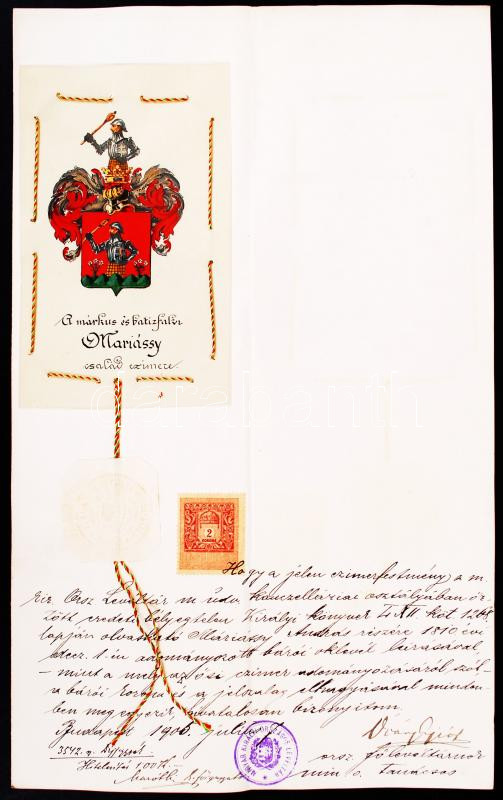 A márkus és batizfalvi
Máriássy
család czimere.
2
KORONA
Hogy a jelen czimerfestmény, a m.
kir. Orsz. Levéltár m. udv. kanczelláriai osztályában őr-
zött eredeti bélyegtelen Királyi könyvek
lapján olvasható Máriássy András részére 1810 évi
decz. 1-én adományozott bárói oklevél leirásával,
– mint a mely az ősi czimer adományozásáról szól –
a bárói korona és a jelszalag elhagyásával minden-
ben megegyezik, hivatalosan bizonyitom.
Budapest 1906. julius
3542. sz.
Hitelesítés
orsz. főlevéltárnok
min. o. tanácsos
MAGYAR KIRÁLYI ORSZÁGOS LEVÉLTÁR
darabanth